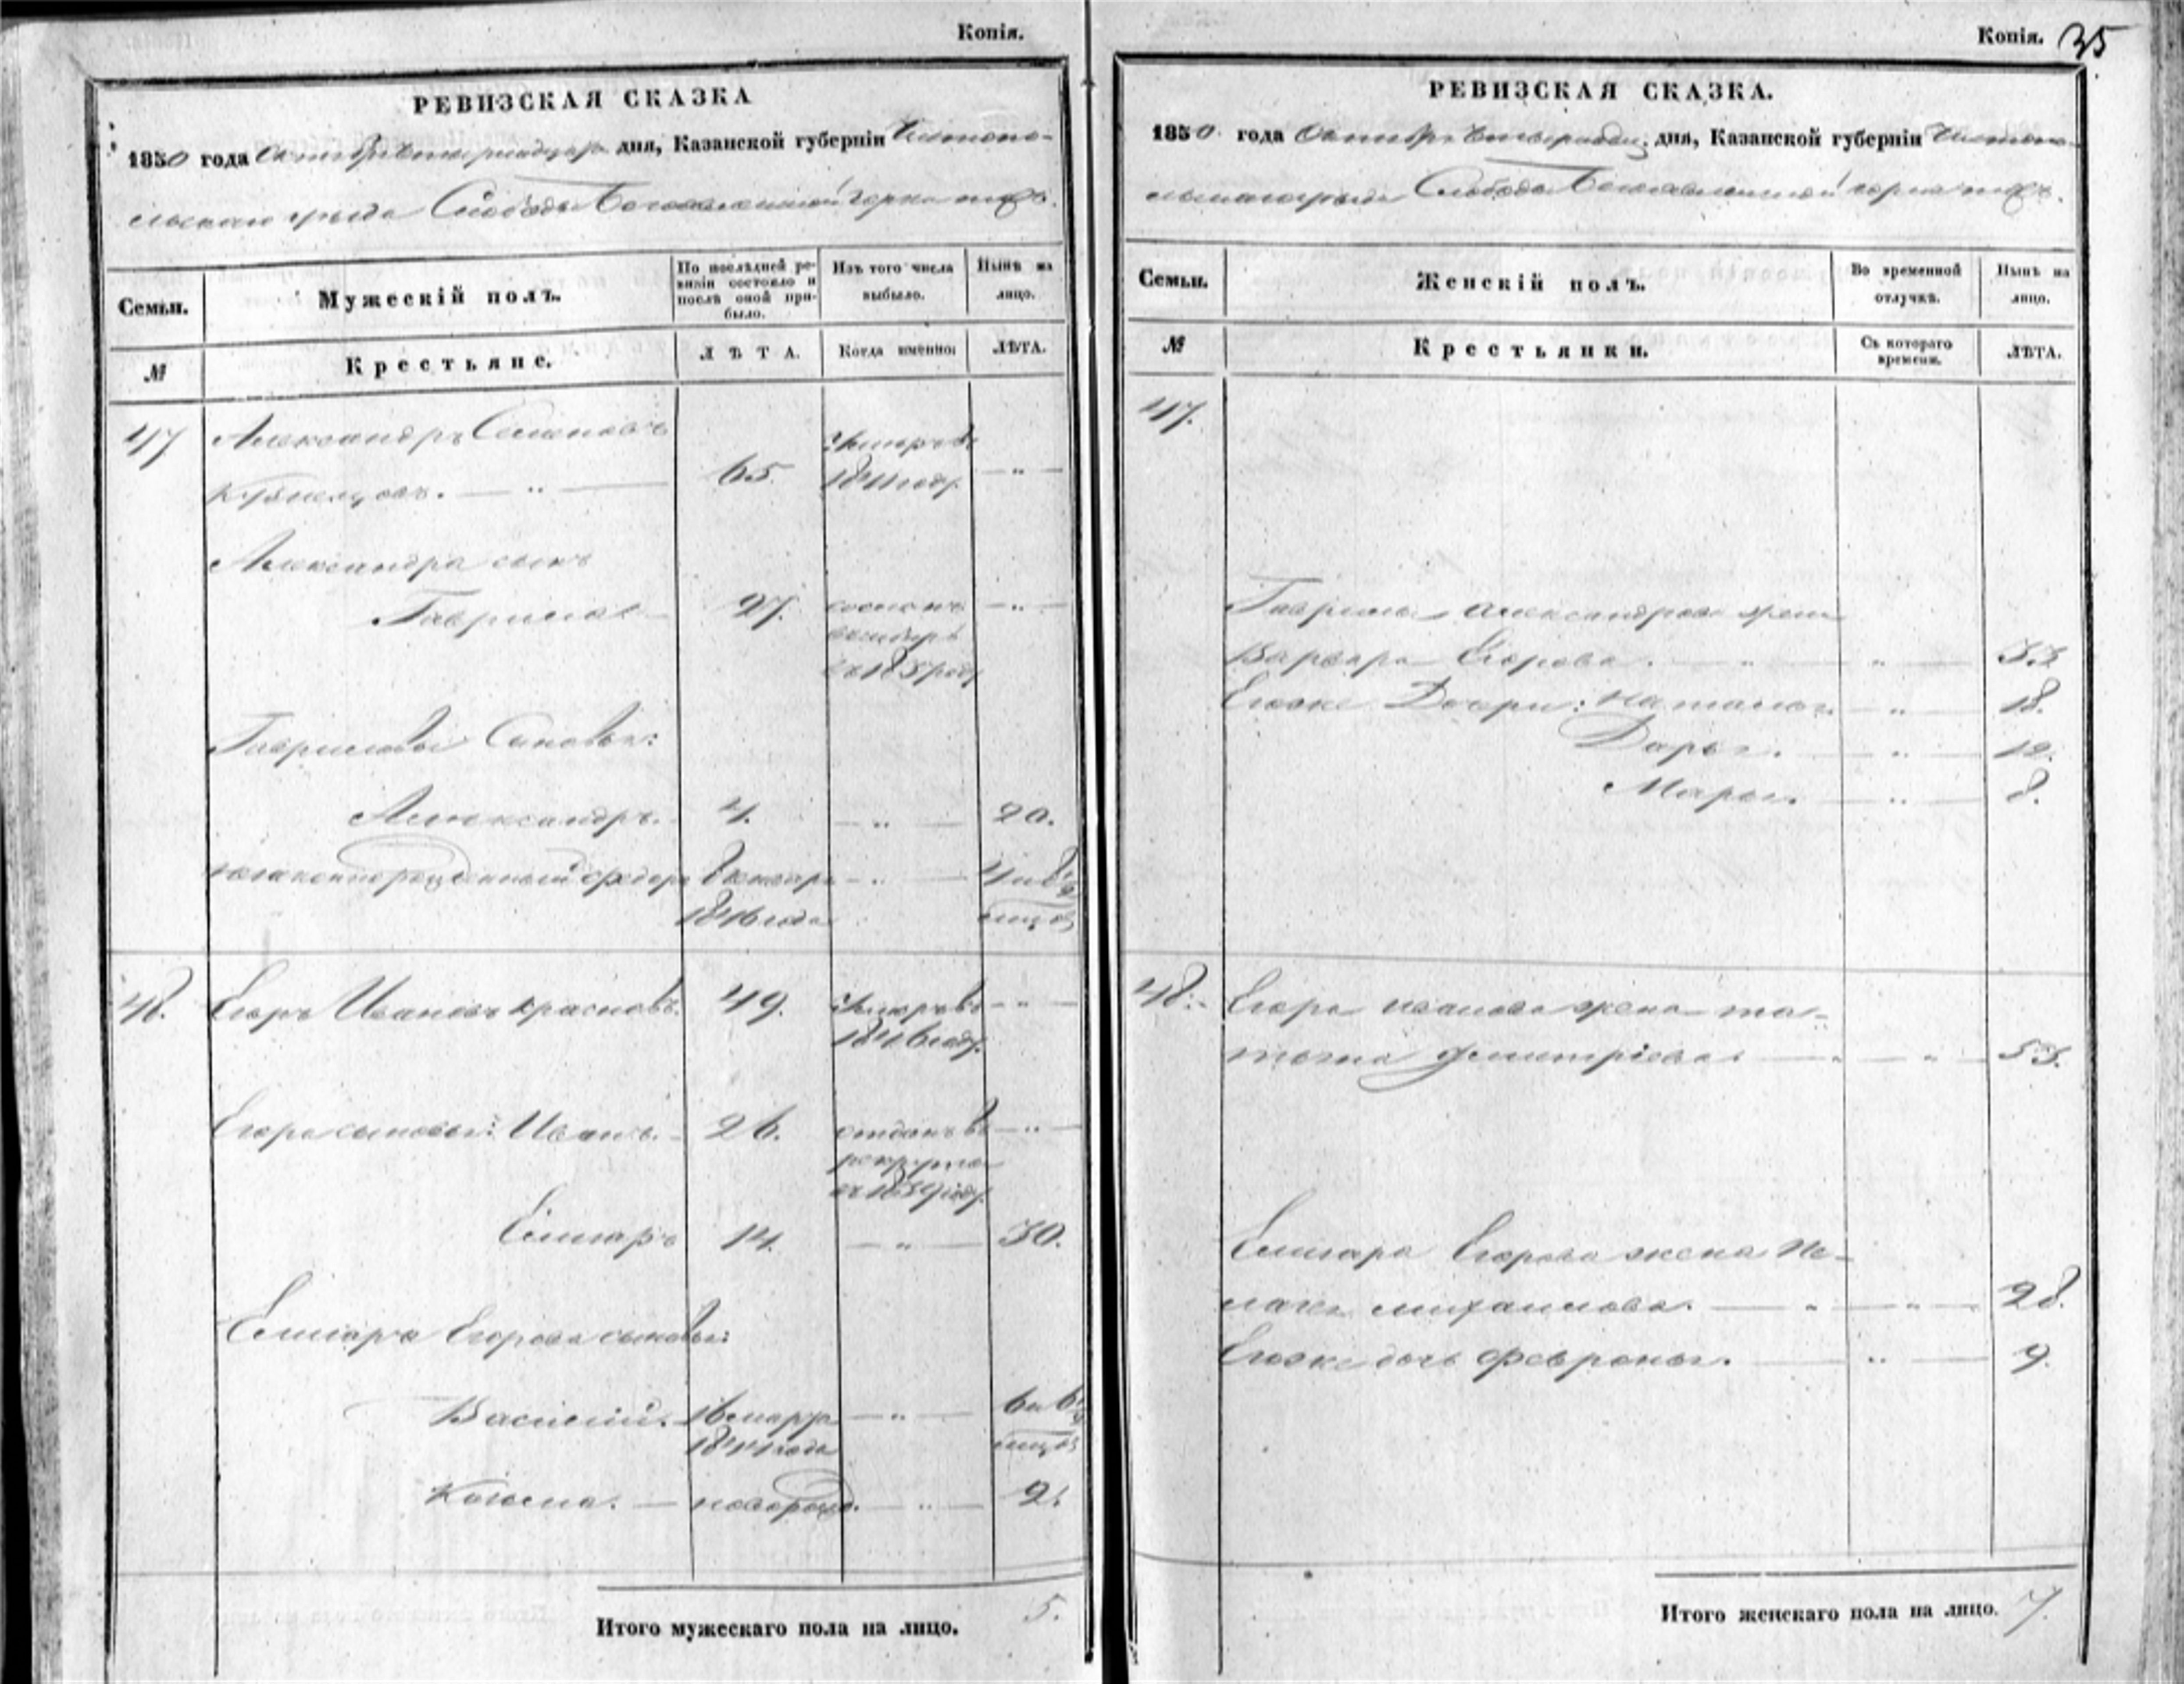 Копія.
РЕВИЗСКАЯ СКАЗКА
1850 года Октября четырнадцат дня, Казанской губерніи Чистопо-
льскаго уезда Слободы Богоявленской горка тожъ.
Семьи.
Мужескій полъ.
По послѣдней ре-
визіи состояло и
послѣ оной при-
было.
Изъ того числа
выбыло.
Нынѣ на
лицо.
№
Крестьяне.
ЛѢТА.
Когда именно:
ЛѢТА.
47 Александръ Семеновъ Умеръ въ
Кузнецовъ. — „ — 65. 1841 году — „ —
Александра сынъ
Гаврила 27. сосланъ — „ —
въ 1835 году
Гавриловы Сыновья:
Александръ. 4. — „ — 20.
Федоръ 8 генваря — „ — 4 и 8½
1846 года мицов
48. Егоръ Ивановъ Красновъ. 49. Умеръ въ — „ —
1846 году.
Егора сыновья: Иванъ. 26. отданъ въ — „ —
рекруты
въ 1839 году.
Елизаръ 14. — „ — 30.
Елизара Егорова сыновья:
Василій. 16 марта — „ — 6 и 6½
1844 года
Козьма. — новорожд. — „ — 2.
Итого мужескаго пола на лицо. 5.
Копія. 35
РЕВИЗСКАЯ СКАЗКА.
1850 года Октября Четырнадц. дня, Казанской губерніи Чистопо-
льскаго уезда Слободы Богоявленской горка тожъ.
Семьи.
Женскій полъ.
Во временной
отлучкѣ.
Нынѣ на
лицо.
№
Крестьянки.
Съ котораго
времени.
ЛѢТА.
47.
Гаврилы Александрова жена
Варвара Егорова. — „ — „ — 33
Егоже Дочри: Наталья. — „ — 18.
Дарья. — „ — 12.
Марья. — „ — 8.
48. Егора Иванова жена Та-
тьяна Дмитріева — „ — „ — 53.
Елизара Егорова жена Пе-
лагея Михаилова. — „ — „ — 28.
Егоже дочь Февронья. — „ — 9.
Итого женскаго пола на лицо. 7.